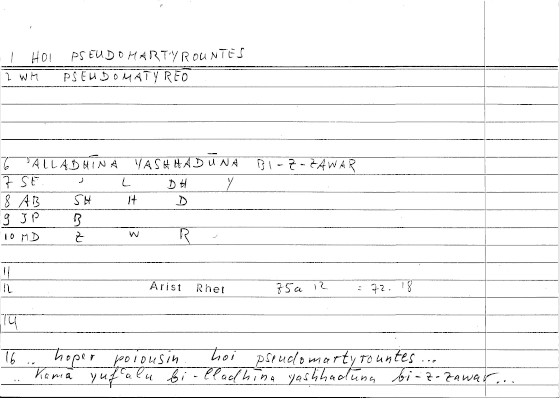 1 HOI PSEUDOMARTYROUNTES
2 WM PSEUDOMATYREO
6 'ALLADHĪNA YASHHADŪNA BI-Z-ZAWAR
7 SE ' L DH Y
8 AB SH H D
9 JP B
10 MD Z W R
11
12 Arist Rhet 75a 12 = 72.18
14
16 .. hoper poiousin hoi pseudomartyrountes...
.. Kamā yuf'alu bi-lladhīna yashhadūna bi-z-zawar...